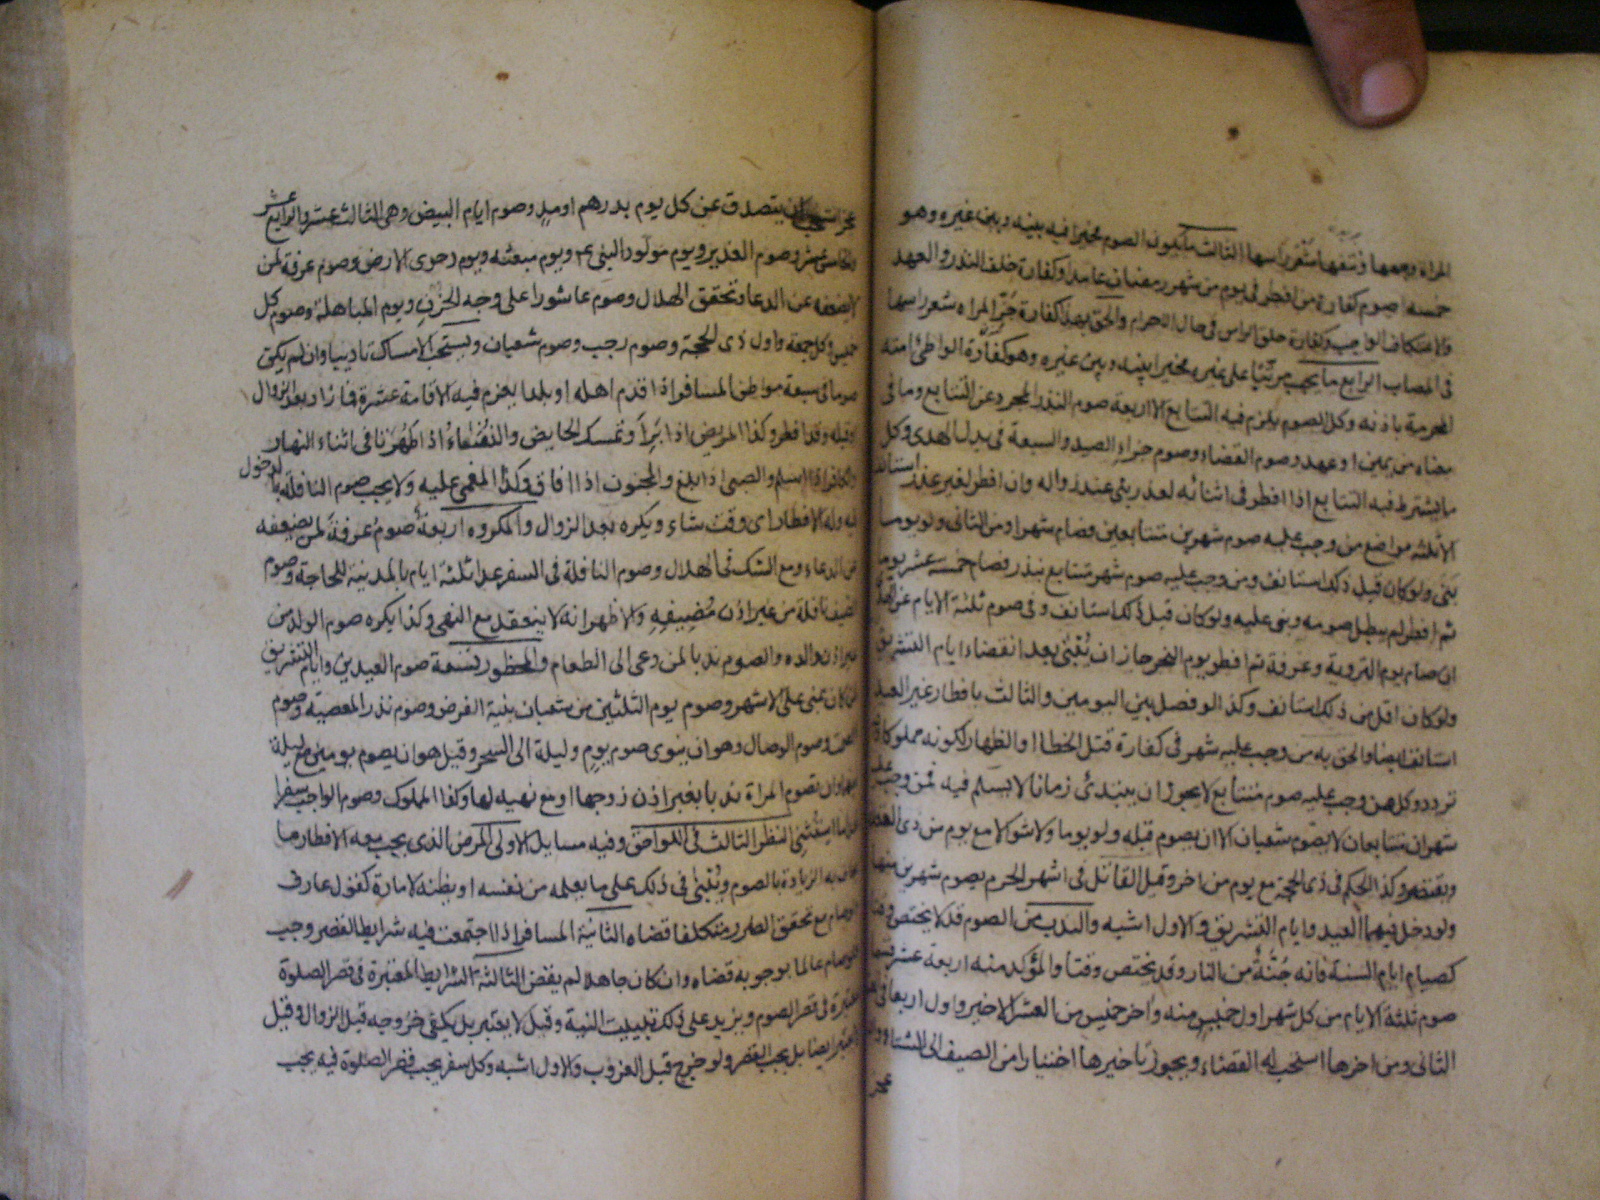 المراة وجهها ونتفها شعر راسها الثالث ما يكون الصوم مخيرا فيه بينه وبين غيره وهو
خمسة صوم كفارة من افطر في يوم من شهر رمضان عامدا وكفارة خلف النذر والعهد
والاعتكاف الواجب وكفارة حلق الراس في حال الاحرام والحق بهذا كفارة جز المراه شعر راسها
في المصاب الرابع ما يجب مرتبا على غيره مخيرا بينه وبين غيره وهو كفارة الواطئ امته
المحرمة باذنه وكل الصوم يلزم فيه التتابع الا اربعة صوم النذر المجرد عن التتابع وما في
معناه من يمين او عهد وصوم القضاء وصوم جزاء الصيد والسبعة في بدل الهدى وكل
ما يشترط فيه التتابع اذا افطر في اثنائه لعذر بنى عند زواله وان افطر لغير عذر استانف
الا ثلثة مواضع من وجب عليه صوم شهرين متتابعين فصام شهرا ومن الثانى ولو يوما
بنى ولو كان قبل ذلك استانف ومن وجب عليه صوم شهر متتابع بنذر فصام خمسة عشر يوما
ثم افطر لم يبطل صومه وبنى عليه ولو كان قبل ذلك استانف وفي صوم ثلثة الايام عن الهدى
ان صام يوم التروية وعرفة ثم افطر يوم النحر جاز ان يبنى بعد انقضاء ايام التشريق
ولو كان اقل من ذلك استانف وكذا لو فصل بين اليومين والثالث بافطار غير العيد
استانف ايضا والحق به من وجب عليه شهر في كفارة قتل الخطا او الظهار لكونه مملوكا وفيه
تردد وكل من وجب عليه صوم متتابع لا يجوز ان يبتدئ زمانا لا يسلم فيه فمن وجب عليه
شهران متتابعان لا يصوم شعبان الا ان يصوم قبله ولو يوما ولا شوالا مع يوم من ذى القعدة
ويقتصر وكذا الحكم في ذى الحجة مع يوم من اخر وقيل القاتل في اشهر الحرم يصوم شهرين منها
ولو دخل فيهما العيد وايام التشريق والاول اشبه والندب من الصوم قد لا يختص وقتا
كصيام ايام السنة فانه جنة من النار وقد يختص وقتا والمؤكد منه اربعة عشر قسما
صوم ثلثة الايام من كل شهر اول خميس منه واخر خميس من العشر الاخير واول اربعا في العشر
الثانى ومن اخرها استحب له القضاء ويجوز تاخيرها اختيارا من الصيف الى الشتا وان
عجز
عجز استحب ان يتصدق عن كل يوم بدرهم او مد وصوم ايام البيض وهى الثالث عشر والرابع عشر
والخامس عشر وصوم الغدير ويوم مولود النبى عم ويوم مبعثه ويوم دحوى الارض وصوم عرفة لمن
لا يضعفه عن الدعا وتحقق الهلال وصوم عاشورا على وجه الحزن ويوم المباهلة وصوم كل
خميس وكل جمعة واول ذى الحجة وصوم رجب وصوم شعبان ويستحب الامساك تاديبا وان لم يكن
صوما في سبعة مواطن المسافر اذا قدم اهله او بلدا يعزم فيه الاقامة عشرة فما زاد بعد الزوال
او قبله وقد افطر وكذا المريض اذا برأ وتمسك الحايض والنفساء اذا طهرتا في اثناء النهار
والكافر اذا اسلم والصبى اذا بلغ والمجنون اذا افاق وكذا المغمى عليه ولا يجب صوم النافلة بالدخول
فيه وله الافطار اى وقت شاء ويكره بعد الزوال والمكروه اربعة صوم عرفة لمن يضعفه
عن الدعاء ومع الشك في الهلال وصوم النافلة في السفر عدا ثلثة ايام بالمدينة للحاجة وصوم
الضيف نافلة من غير اذن مضيفه والاظهر انه لا ينعقد مع النهى وكذا يكره صوم الولد من
غير اذن والده والصوم ندبا لمن دعى الى الطعام والمحظور تسعة صوم العيدين وايام التشريق
لمن كان بمنى على الاشهر وصوم يوم الثلثين من شعبان بنية الفرض وصوم نذر المعصية وصوم
الصمت وصوم الوصال وهو ان ينوى صوم يوم وليلة الى السحر وقيل هو ان يصوم يومين مع ليلة
بينهما وان تصوم المراة ندبا بغير اذن زوجها او مع نهيه لها وكذا المملوك وصوم الواجب سفرا
عدا ما استثنى النظر الثالث في اللواحق وفيه مسايل الاولى المرض الذى يجب معه الافطار ما
يخاف به الزيادة بالصوم ويبنى في ذلك على ما يعلمه من نفسه او يظنه لامارة كقول عارف
ولو صام مع تحقق الضرر متكلفا قضاه الثانية المسافر اذا اجتمعت فيه شرايط القصر وجب
ولو صام عالما بوجوبه قضاه وان كان جاهلا لم يقض الثالثة الشرايط المعتبرة في قصر الصلوة
معتبرة في قصر الصوم ويزيد على ذلك تبييت النية وقيل لا يعتبر بل يكفى خروجه قبل الزوال وقيل
لا يعتبر ايضا بل يجب القصر ولو خرج قبل الغروب والاول اشبه وكل سفر يجب قصر الصلوة فيه يجب